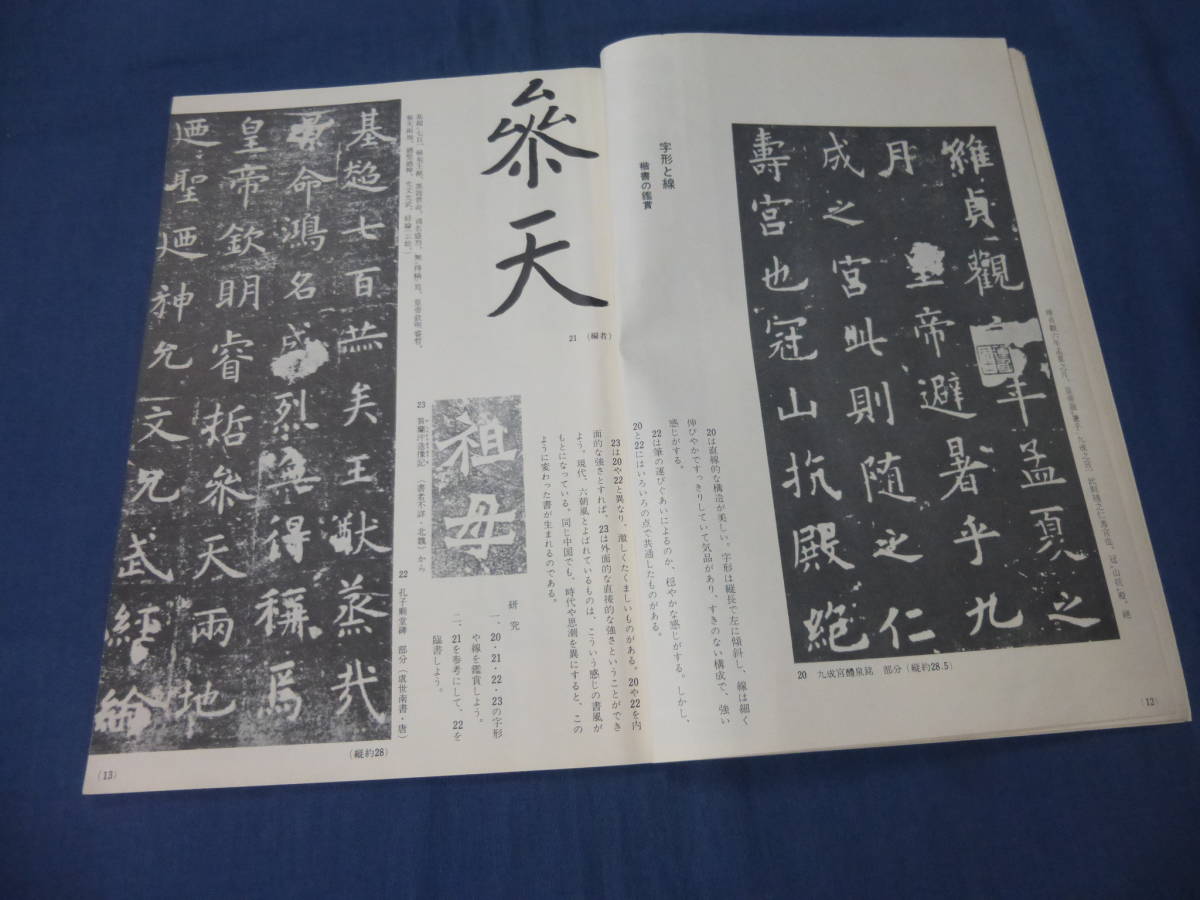 維貞觀六年孟夏之
月皇帝避暑乎九
成之宮此則隨之仁
壽宮也冠山抗殿絶
20 九成宮醴泉銘 部分(縦約28.5)
(12)
字形と線
楷書の鑑賞
20は直線的な構造が美しい。字形は縦長で左に傾斜し、線は細く
伸びやかですっきりしていて気品があり、すきのない構成で、強い
感じがする。
22は筆の運びぐあいによるのか、穏やかな感じがする。しかし、
20と22にはいろいろの点で共通したものがある。
23は20や22と異なり、激しくたくましいものがある。20や22を内
面的な強さとすれば、23は外面的な直接的な強さということができ
よう。現代、六朝風とよばれているものは、こういう感じの書風が
もとになっている。同じ中国でも、時代や思潮を異にすると、この
ように変わった書が生まれるのである。
研究
一、20・21・22・23の字形
や線を鑑賞しよう。
二、21を参考にして、22を
臨書しよう。
參天
21 (編者)
祖母
23 (書者不詳・北魏)から
22 孔子廟堂碑 部分(虞世南書・唐)
基趍七百蒸矣王猷蒸哉
命鴻名盛烈無得稱焉
皇帝欽明睿哲參天兩地
迺聖迺神允文允武經綸
(縦約28)
(13)